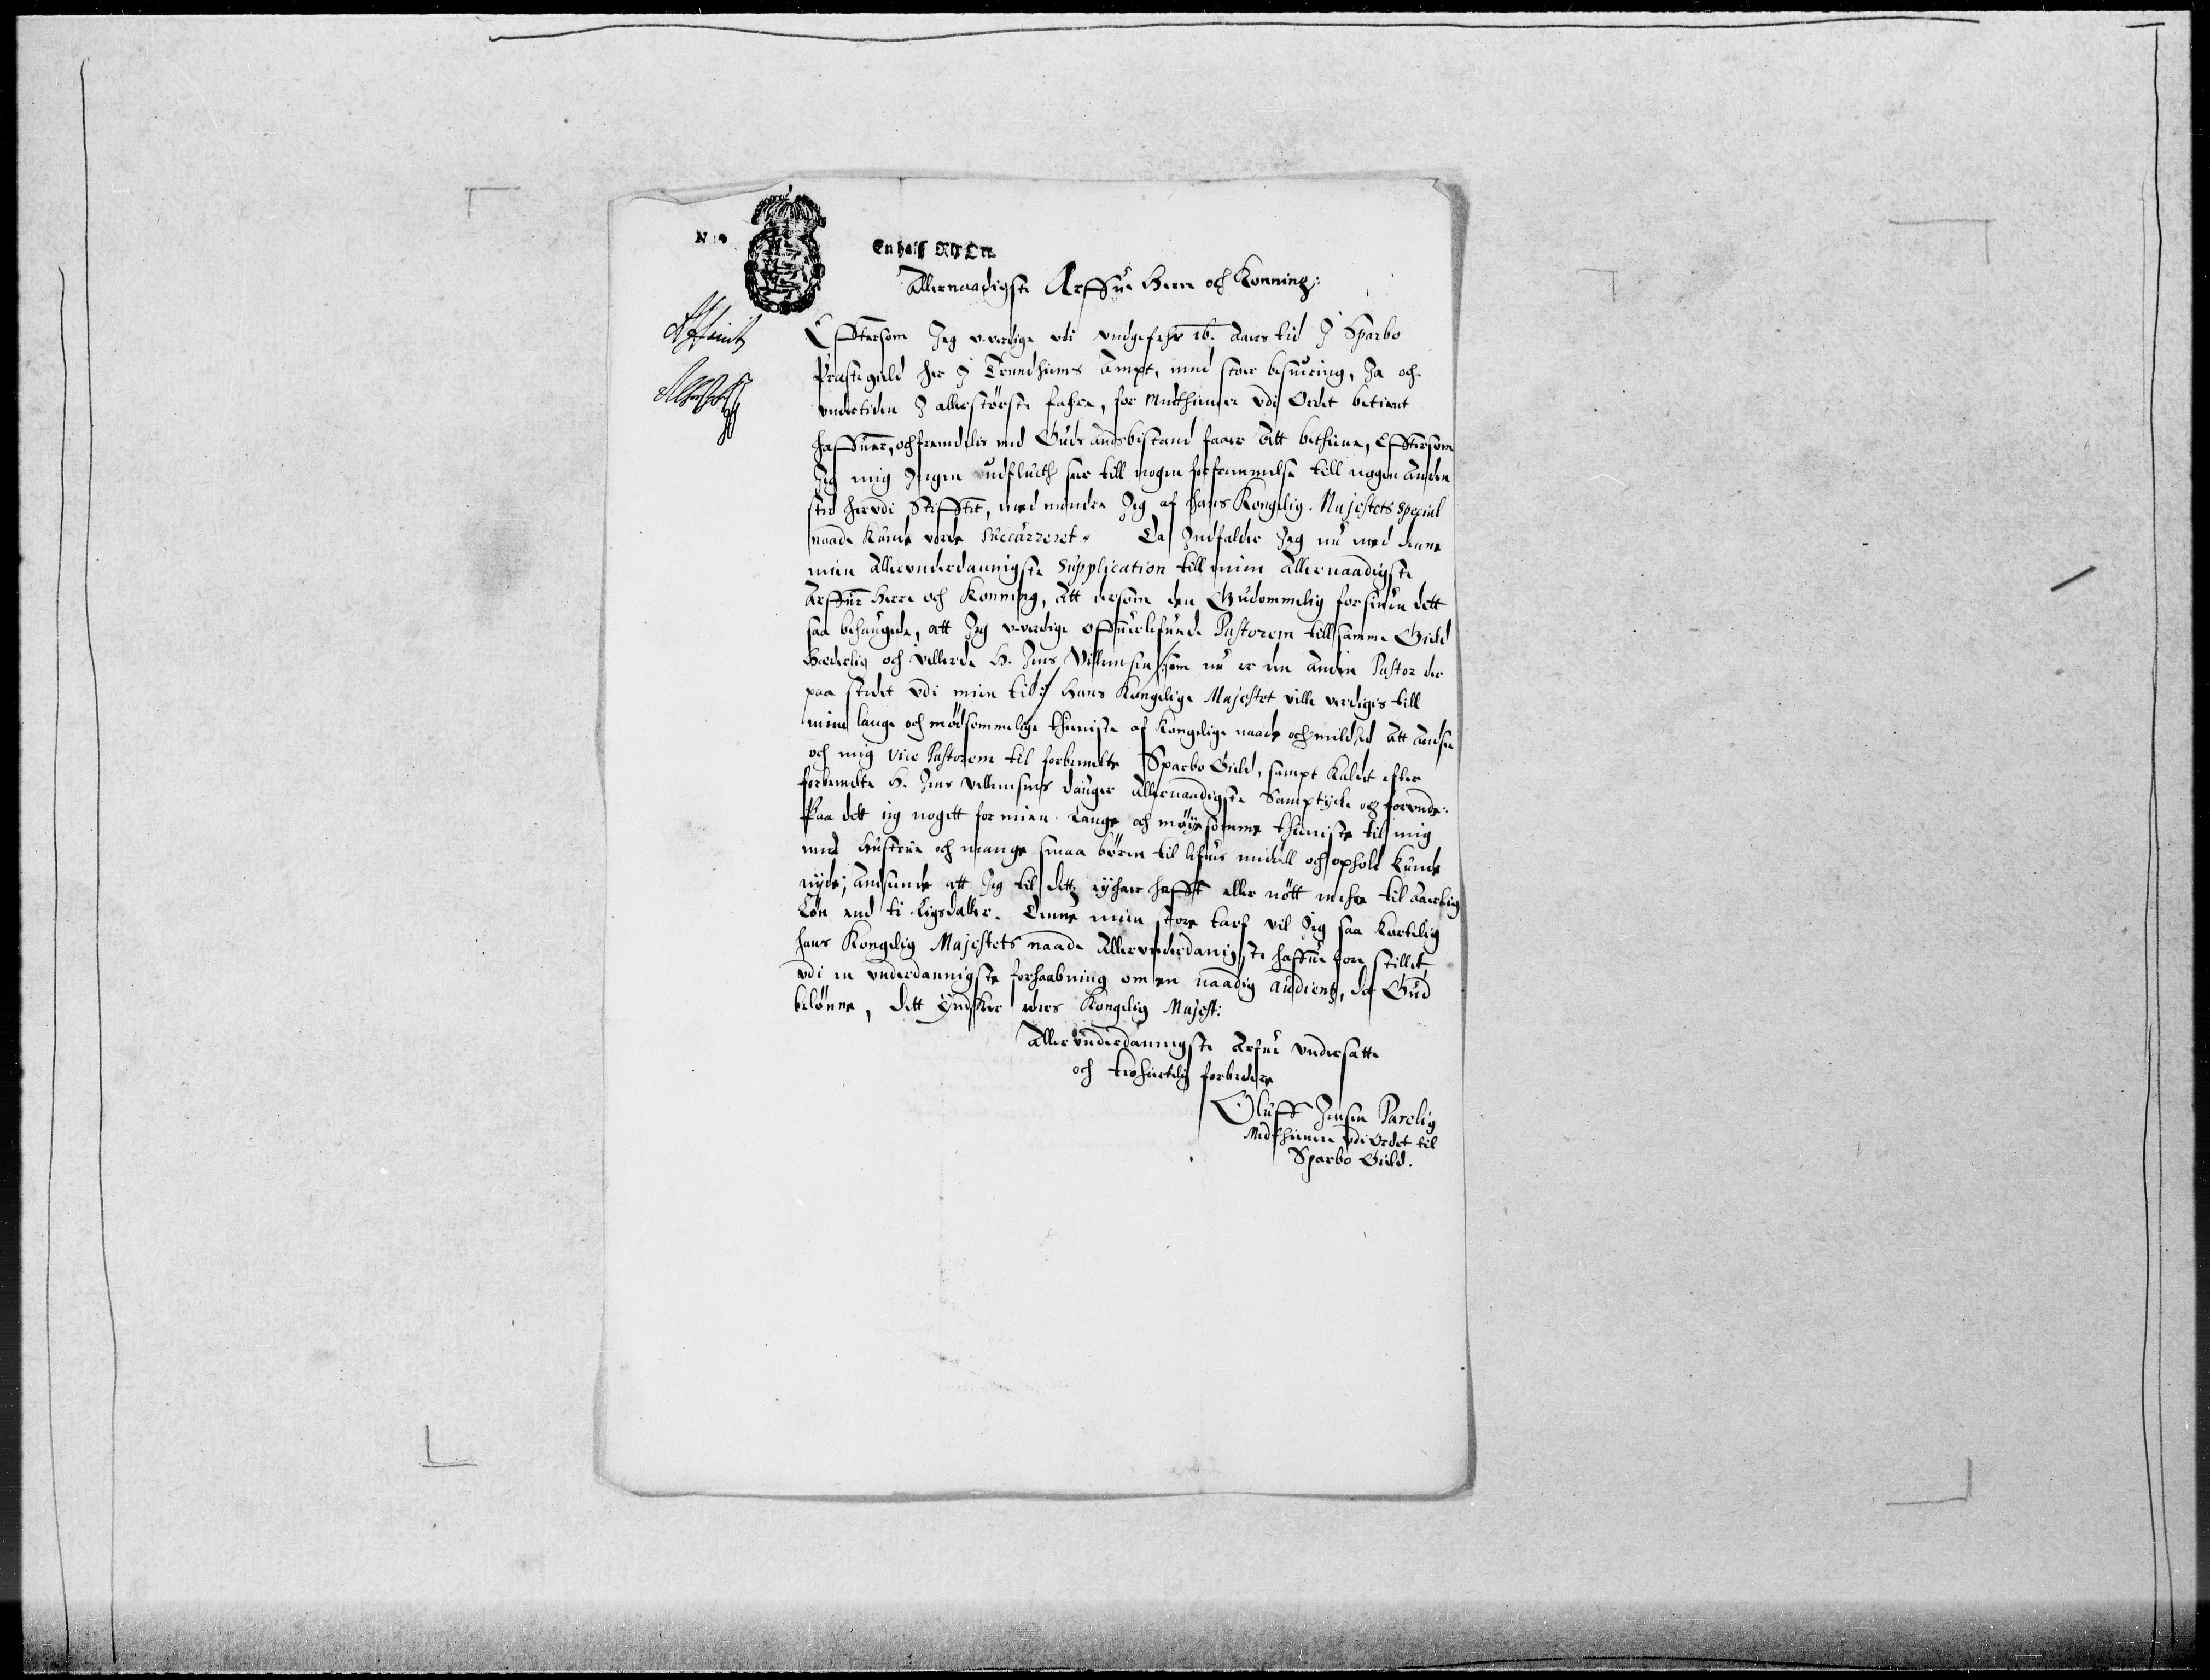 En half Rix Ort
Allernaadigste Arffue Herre och Konning:
Efftersom Jeg v-verdige vdi vndgefehr 16. Aars tid J Sparbo
Præstegield her J Trundhiems Ampt, med stoer besuering, Ja och
vndertiden J allerstörste fahre, for Medthienere vdi Ordet betient
haffuer, och fremdelis med Guds Aands bistand faaer Att bethiene, Efftersom
Jeg mig Jngen vdflucth seer till nogen forfremmelse till nogen Anden
sted her vdi Stifftet, med mindre Jeg af Hans Kongelig. Majestets special
naade Kunde vorde succurreret. Da Jndfalder Jeg nu med denne
min Allervnderdannigste Supplication till min Allernaadigste
Arffue Herre och Konning, Att dersom den Gudommelig forsiun dett
saa behaugede, att Jeg v-verdige offuerlefuede Pastorem till samme Gield
Hæderlig och Vellerde H. Jens Villemsen /: som nu er den Anden Pastor der
paa stedet vdi min tid :/ Hans Kongelige Majestet ville verdiges till
min lange och mödsommelige thieniste af Kongelige naade och mildhed Att Ansee
och mig Vice Pastorem til forbemelte Sparbo Gield, sampt Kaldet efter
forbemelte H. Jens Villemsens dauger Allernaadigste Samptycke och forvnde.
Paa dett jeg nogett for min Lange och möyesomme thieniste til mig
med Hustrue och mange smaa börn til lifuis middell och ophold Kunde
nyde; Anseende att Jeg til dette ey haer hafft eller nött mehre til Aarlig
Lön end ti Rigsdaller. Denne min store tarf vil Jeg saa Kortelig
Hans Kongelig Majestets naade Allervnderdanigste haffue fore stillet,
vdi en vnderdannigste forhaabning om en naadig Audientz, da Gud
belönne, dett Ynsker eders Kongelig Majest:
Allervnderdannigste Arfue vndersatte
och trohiertelig forbedere
Oluff Jensen Parelig
Medthienere vdi Ordet til
Sparbo Gield.